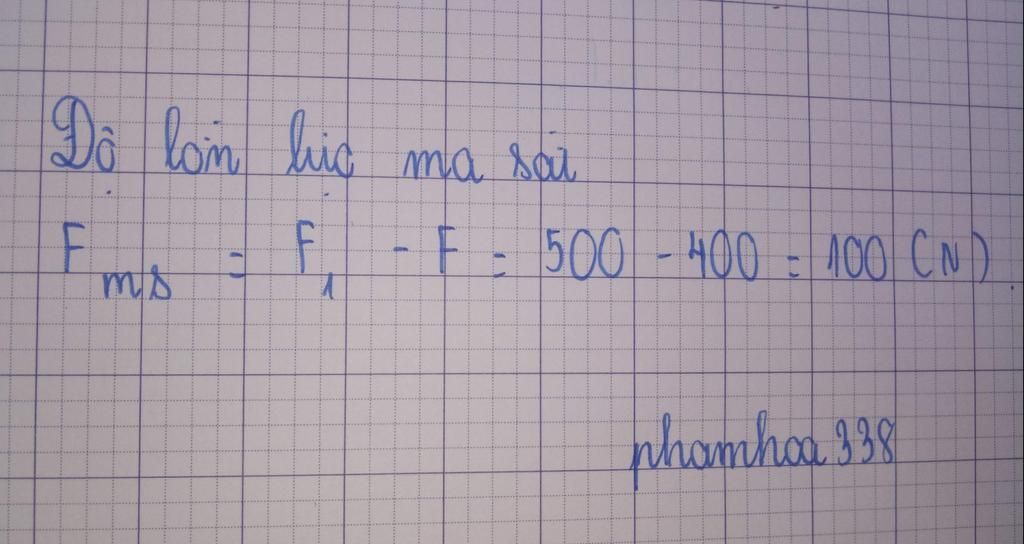 Độ lớn lực ma sát
F ms = F 1 - F = 500 - 400 = 100 (N)
phamhoa338